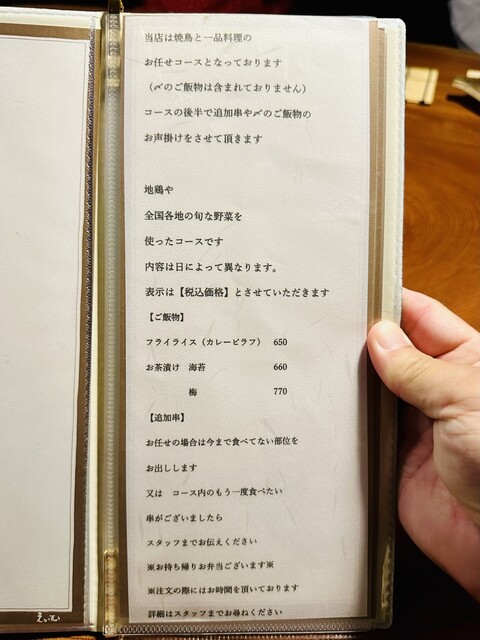 当店は焼鳥と一品料理の
お任せコースとなっております
（〆のご飯物は含まれておりません）
コースの後半で追加串や〆のご飯物の
お声掛けをさせて頂きます
地鶏や
全国各地の旬な野菜を
使ったコースです
内容は日によって異なります。
表示は【税込価格】とさせていただきます
【ご飯物】
フライライス（カレーピラフ） 650
お茶漬け 海苔 660
梅 770
【追加串】
お任せの場合は今まで食べてない部位を
お出しします
又は コース内のもう一度食べたい
串がございましたら
スタッフまでお伝えください
※お持ち帰りお弁当ございます※
※注文の際にはお時間を頂いております
詳細はスタッフまでお尋ねください